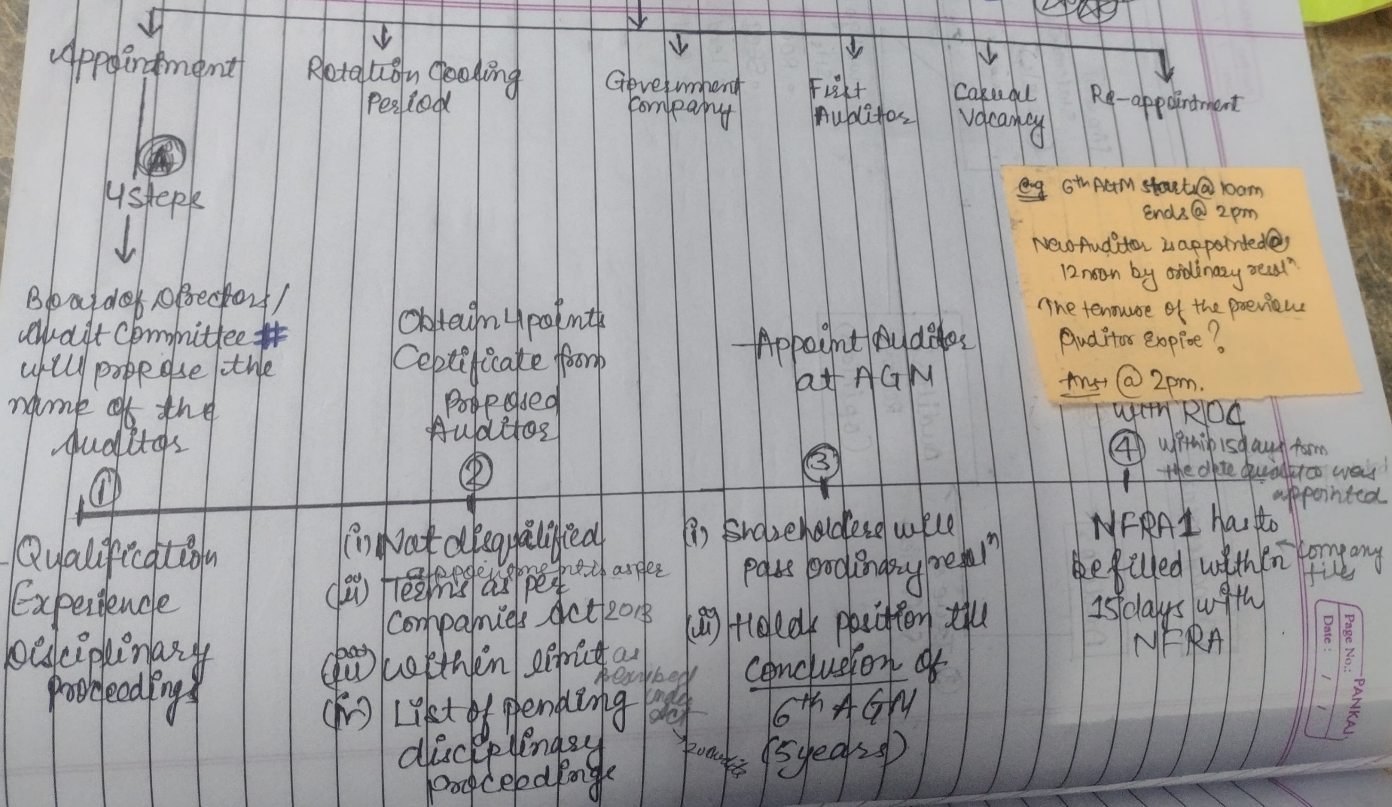 Appointment
Rotation Cooling
Period
Government
Company
First
Auditor
Casual
Vacancy
Re-appointment
A
4 steps
e.g 6th AGM starts @ 10am
Ends @ 2pm
New Auditor is appointed @
12 noon by ordinary resolⁿ
The tenure of the previous
Auditor Expire?
Ans @ 2pm.
Board of Directors/
Audit Committee #
will propose the
name of the
Auditor
Obtain 4 points
Certificate from
Proposed
Auditor
Appoint Auditor
at AGM
with ROC
within 15 days form
the date auditor was
appointed
1
2
3
4
Qualification
Experience
Disciplinary
proceedings
(i) Not disqualified
appointment is as per
(ii) Terms as per
Companies Act 2013
(iii) within limit as
under
Act
20 audits
(iv) List of pending
disciplinary
proceedings
(i) Shareholders will
pass ordinary resolⁿ
(ii) Holds position till
conclusion of
6th AGM
(5 years)
NFRA1 has to
be filled within
15 days with
NFRA
company
files
Page No.:
Date: / /
PANKAJ